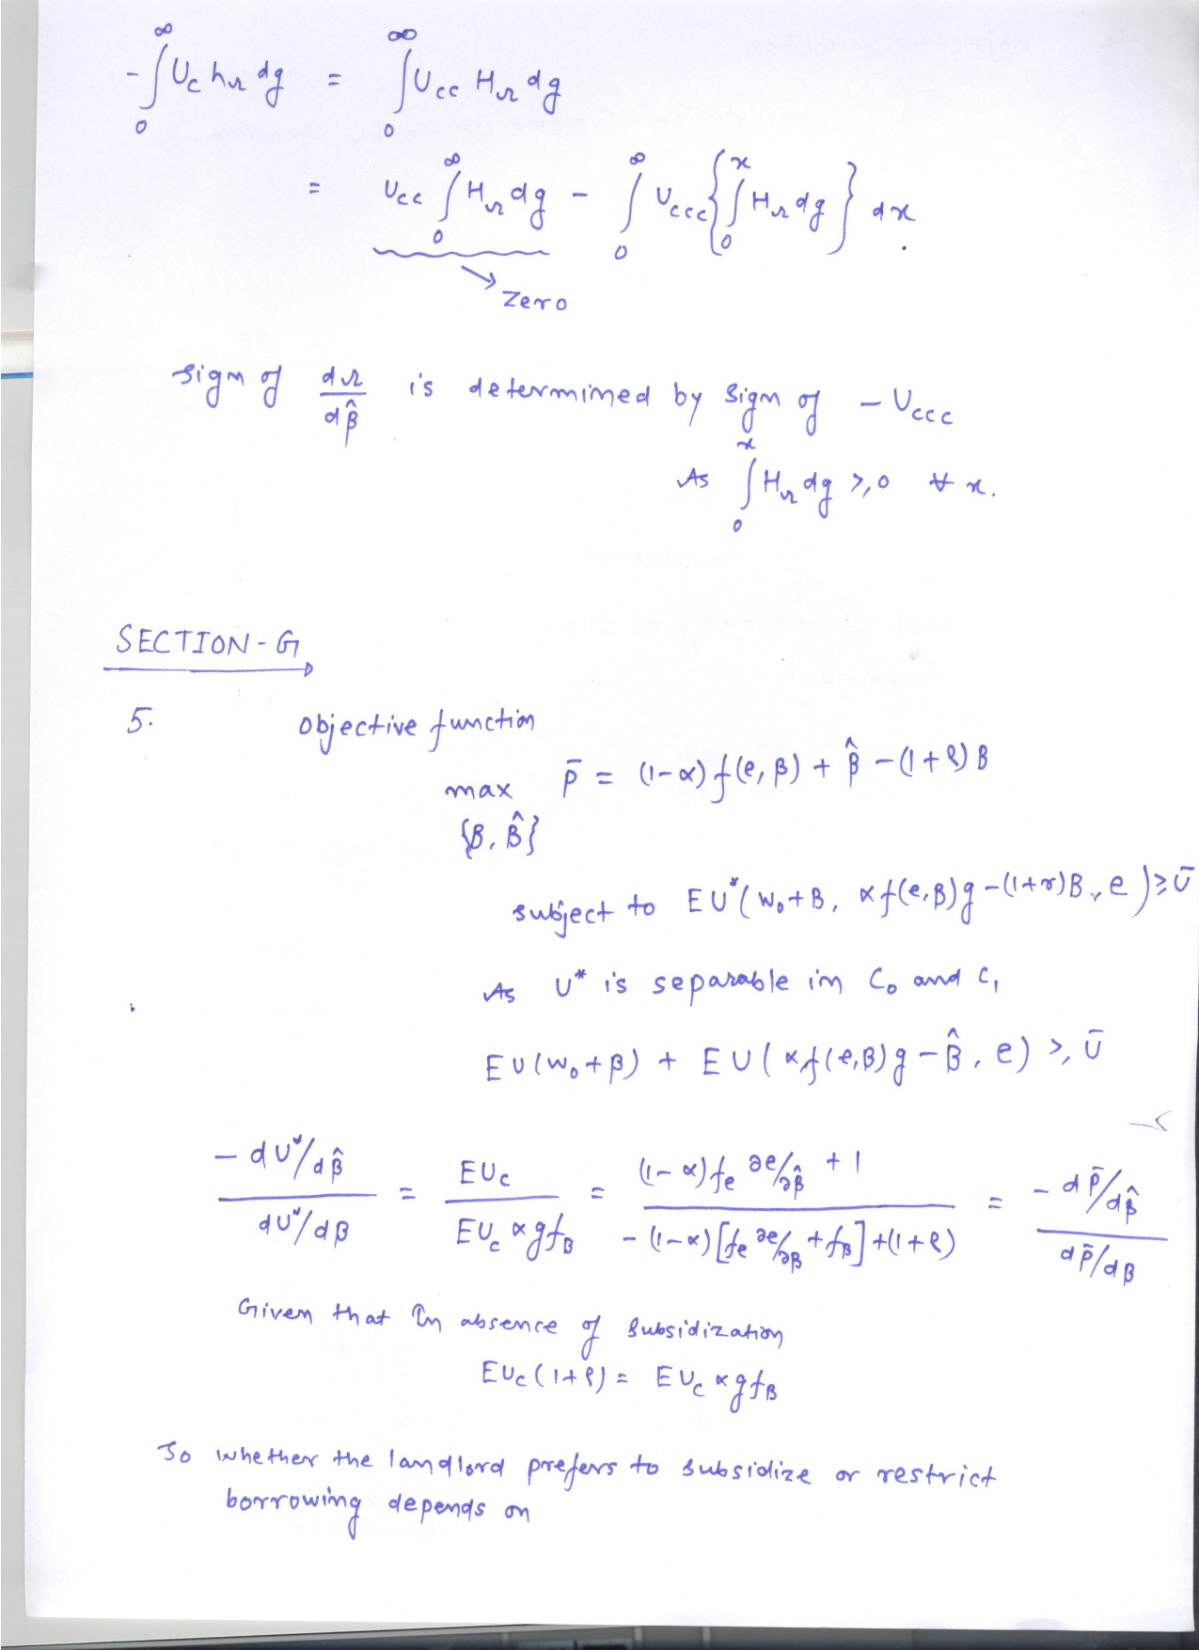 - ∫₀^∞ U_c h_r dg = ∫₀^∞ U_cc H_r dg
= U_cc ∫₀^∞ H_r dg - ∫₀^∞ U_ccc { ∫₀^x H_r dg } dx .
→ Zero
Sign of dr/dβ̂ is determined by Sign of - U_ccc
As ∫₀^x H_r dg ≥ 0 ∀ x.
SECTION - G
5. Objective function
max P̄ = (1-α) f(e, β) + β̂ - (1+ρ) B
{B, B̂}
subject to EU*(w₀+B, αf(e,B)g - (1+r)B, e) ≥ Ū
As U* is separable in C₀ and C₁
EU(w₀+β) + EU(αf(e,B)g - B̂, e) ≥ Ū
(- dU*/dβ̂)/(dU*/dβ) = EU_c/(EU_c αgf_B) = ((1-α)f_e ∂e/∂β̂ + 1)/(- (1-α)[f_e ∂e/∂β + f_B] + (1+ρ)) = (- dP̄/dβ̂)/(dP̄/dβ)
Given that In absence of Subsidization
EU_c(1+ρ) = EU_c αgf_B
So whether the landlord prefers to subsidize or restrict
borrowing depends on